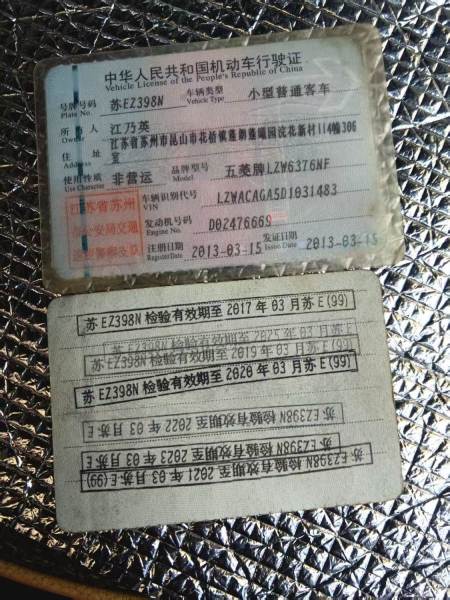 中华人民共和国机动车行驶证
Vehicle License of the People's Republic of China
号牌号码 苏EZ398N 车辆类型 小型普通客车
Plate No. Vehicle Type
所有人 江乃英
Owner
住址 江苏省苏州市昆山市花桥镇蓬朗蓬曦园浣花新村114幢306室
Address
使用性质 非营运 品牌型号 五菱牌LZW6376NF
Use Character Model
江苏省苏州 车辆识别代号 LZWACAGA5D1031483
VIN
市公安局交通 发动机号码 D02476669
Engine No.
巡逻警察支队 注册日期 2013-03-15 发证日期 2013-03-15
Register Date Issue Date
苏EZ398N 检验有效期至 2017年03月苏E(99)
苏EZ398N 检验有效期至 2025年03月苏E
苏EZ398N 检验有效期至 2019年03月苏E(99)
苏EZ398N 检验有效期至 2020年03月苏E(99)
苏EZ398N 检验有效期至 2022年03月苏E
苏EZ398N 检验有效期至 2023年03月苏E
苏EZ398N 检验有效期至 2021年03月苏E(99)